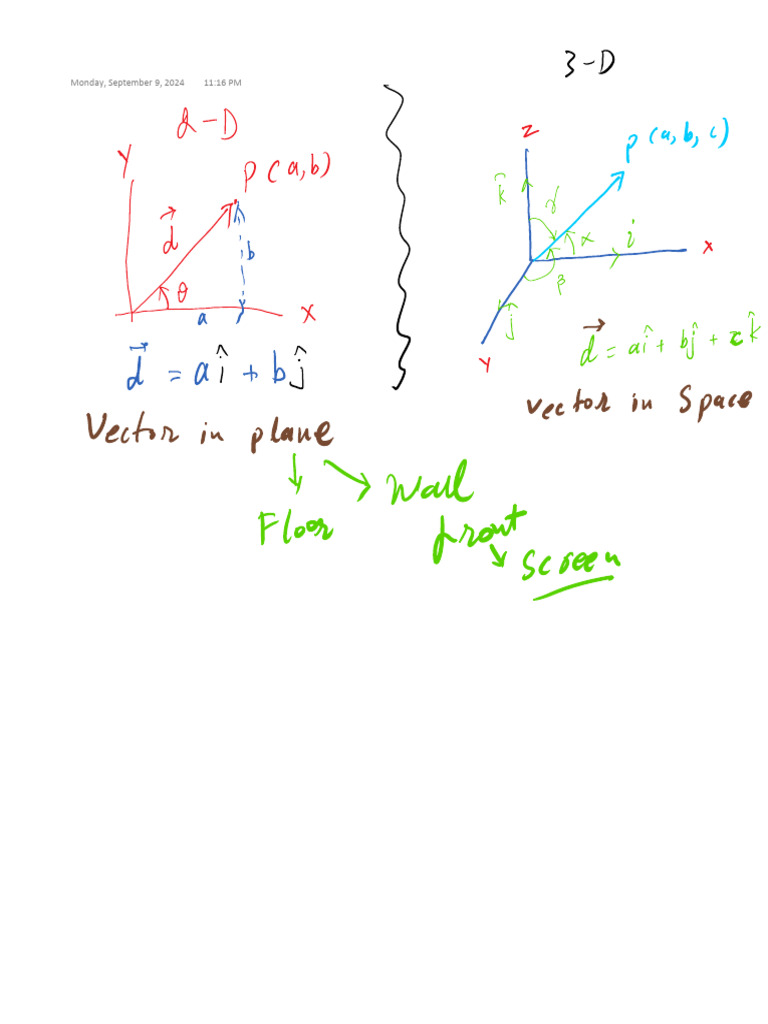 Monday, September 9, 2024 11:16 PM
2-D
Y
P(a,b)
d⃗
b
θ
a
X
d⃗ = aî + bĵ
Vector in plane
Floor
Wall
front
screen
3-D
Z
P(a,b,c)
k̂
γ
α
i
X
β
ĵ
Y
d⃗ = aî + bĵ + ck̂
vector in Space